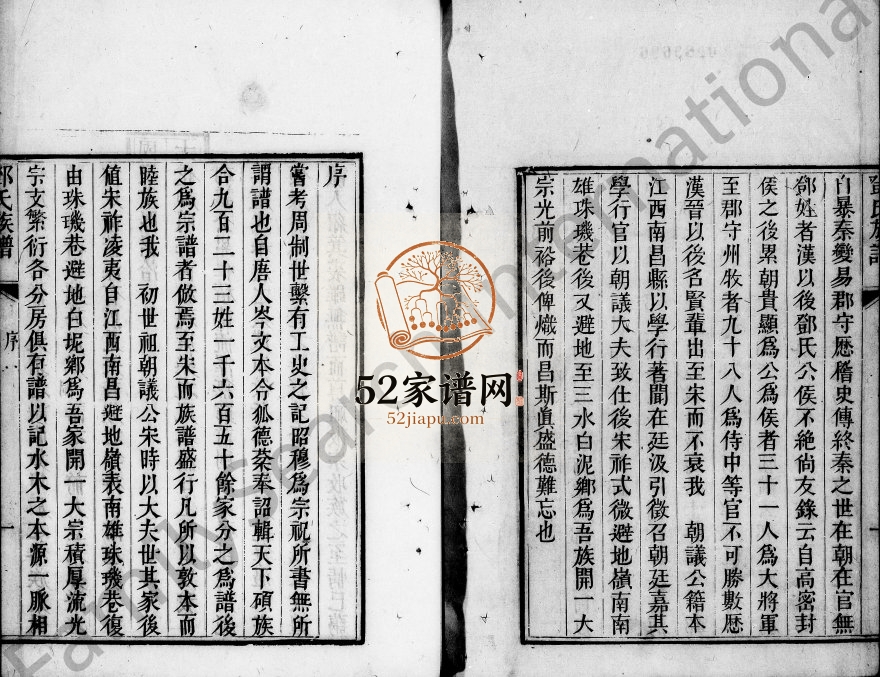 鄧氏族譜
自暴秦變易郡守歷稽史傳終秦之世在朝在官無
鄧姓者漢以後鄧氏公侯不絶尙友錄云自高密封
侯之後累朝貴顯爲公爲侯者三十一人爲大將軍
至郡守州牧者九十八人爲侍中等官不可勝數歷
漢晉以後名賢輩出至宋而不衰我 朝議公籍本
江西南昌縣以學行著聞在廷汲引徵召朝廷嘉其
學行官以朝議大夫致仕後宋祚式微避地嶺南南
雄珠璣巷後又避地至三水白泥鄉爲吾族開一大
宗光前裕後俾熾而昌斯眞盛德難忘也
序
嘗考周制世繫有工史之記昭穆爲宗祝所書無所
謂譜也自唐人岑文本令狐德棻奉詔輯天下碩族
合九百二十三姓一千六百五十餘家分之爲譜後
之爲宗譜者倣焉至朱而族譜盛行凡所以敦本而
睦族也我 初世祖朝議公宋時以大夫世其家後
值宋祚凌夷自江西南昌避地嶺表南雄珠璣巷復
由珠璣巷避地白坭鄉爲吾家開一大宗積厚流光
宗支繁衍各分房俱有譜以記水木之本源一脈相
鄧氏族譜
序
一
52家谱网
52jiapu.com
Family Search International